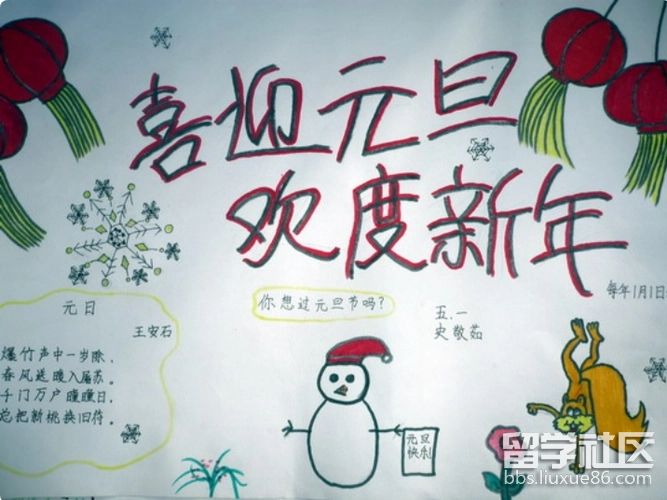 喜迎元旦
欢度新年
元日
王安石
爆竹声中一岁除，
春风送暖入屠苏。
千门万户曈曈日，
总把新桃换旧符。
你想过元旦节吗？
五.一
史敬茹
每年1月1日
元旦
快乐!
留学社区
bbs.liuxue86.com